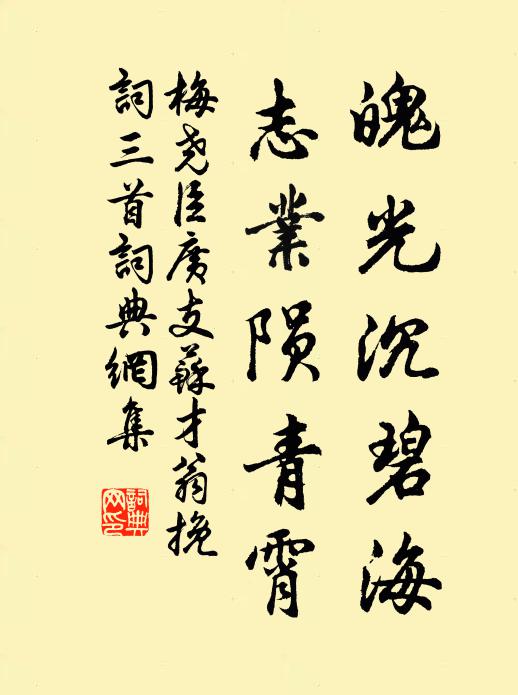 魄光沉碧海
志業陨青霄
梅尭臣廣支蘇才翁挽
詞三首詞典網集
詞典
网印